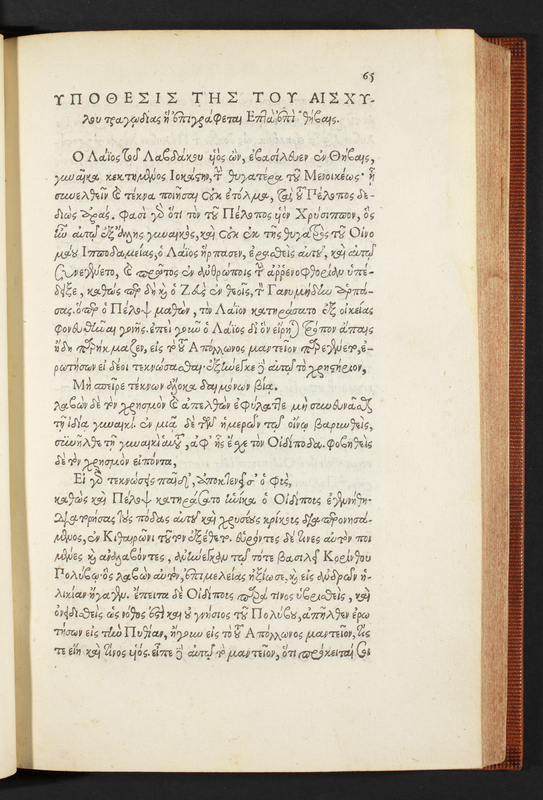 65
ΥΠΟΘΕΣΙΣ ΤΗΣ ΤΟΥ ΑΙΣΧΥ-
λου τραγῳδίας ἣ ἐπιγράφεται Επτὰ ἐπὶ θήβαις.
Ο Λάϊος τοῦ Λαβδάκου υἱὸς ὢν, ἐβασίλευεν ἐν Θήβαις,
γυναῖκα κεκτημένος Ιοκάστην, τὴν θυγατέρα τοῦ Μενοικέως· ᾗ
συνελθεῖν καὶ τέκνα ποιῆσαι οὐκ ἐτόλμα, τὰς τοῦ Πέλοπος δε-
διὼς ἀράς. Φασὶ γὰρ ὅτι τὸν τοῦ Πέλοπος υἱὸν Χρύσιππον, ὃς
ἦν αὐτῷ ἐξ ἄλλης γυναικὸς, καὶ οὐκ ἐκ τῆς θυγατρὸς τοῦ Οἰνο
μάου Ιπποδαμείας, ὁ Λάϊος ἥρπασεν, ἐρασθεὶς αὐτοῦ, καὶ αὐτῷ
συνεγένετο, καὶ πρῶτος ἐν ἀνθρώποις τὴν ἀρρενοφθορίαν ὑπέ-
δειξε, καθὼς περ δὴ καὶ ὁ Ζεὺς ἐν θεοῖς, τὸν Γανυμήδην ἁρπά-
σας. ὅπερ ὁ Πέλοψ μαθὼν, τὸν Λάϊον κατηράσατο ἐξ οἰκείας
φονευθῆναι γονῆς. ἐπεὶ γοῦν ὁ Λάϊος δι' ὃν εἴρηται τρόπον ἄπαις
ἤδη παρήκμαζεν, εἰς τὸ τοῦ Απόλλωνος μαντεῖον παρεγένετο, ἐ-
ρωτήσων εἰ δέοι τεκνώσασθαι. ἐξήνεγκε δὲ αὐτῷ τὸ χρηστήριον,
Μὴ σπεῖρε τέκνων ἄλοκα δαιμόνων βίᾳ.
λαβὼν δὲ τὸν χρησμὸν καὶ ἀπελθὼν ἐφύλαττε μὴ συνευνᾶσθαι
τῇ ἰδίᾳ γυναικί. ἐν μιᾷ δὲ τῶν ἡμερῶν τῷ οἴνῳ βαρυνθεὶς,
συνῆλθε τῇ γυναικὶ αὐτοῦ, ἀφ' ἧς ἔσχε τὸν Οἰδίποδα. φοβηθεὶς
δὲ τὸν χρησμὸν εἰπόντα,
Εἰ γὰρ τεκνώσεις παῖδ', ἀποκτενεῖ σ' ὁ φύς,
καθὼς καὶ Πέλοψ κατηράσατο ἡνίκα ὁ Οἰδίποις ἐγεννήθη.
διατρήσας τοὺς πόδας αὐτοῦ καὶ χρυσέους κρίκους διαπερονησά-
μενος, ἐν Κιθαιρῶνι τοῦτον ἐξέθετο. εὑρόντες δέ τινες αὐτὸν ποι
μένες καὶ ἀναλαβόντες, ἀνήνεγκαν τῷ τότε βασιλεῖ Κορίνθου
Πολύβῳ· ὃς λαβὼν αὐτὸν, ἐπιμελείας ἠξίωσε. καὶ εἰς ἀνδρῶν ἡ-
λικίαν ἤγαγεν. ἔπειτα δὲ Οἰδίπους παρά τινος ὑβρισθεὶς, καὶ
ὀνειδισθεὶς ὡς νόθος ἐστὶ καὶ οὐ γνήσιος τοῦ Πολύβου, ἀπῆλθεν ἐρω
τήσων εἰς τὴν Πυθίαν, ἤγουν εἰς τὸ τοῦ Απόλλωνος μαντεῖον, τίς
τε εἴη καὶ τίνος υἱός. εἶπε δὲ αὐτῷ τὸ μαντεῖον, ὅτι πρόκειταί σοι